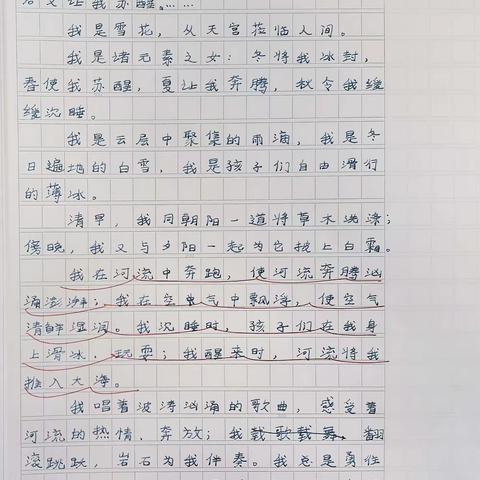 后又让我苏醒。……
我是雪花，从天宫莅临人间。
我是诸元素之女：冬将我冰封，
春使我苏醒，夏让我奔腾，秋令我缓
缓沉睡。
我是云层中聚集的雨滴，我是冬
日遍地的白雪，我是孩子们自由滑行
的薄冰。
清早，我同朝阳一道将草木洗涤；
傍晚，我又与夕阳一起为它披上白霜。
我在河流中奔跑，使河流奔腾汹
涌澎湃；我在空气中飘浮，使空气
清鲜湿润。我沉睡时，孩子们在我身
上滑冰、玩耍；我醒来时，河流将我
推入大海。
我唱着波涛汹涌的歌曲，感受着
河流的热情、奔放；我载歌载舞、翻
滚跳跃，岩石为我伴奏。我总是勇往